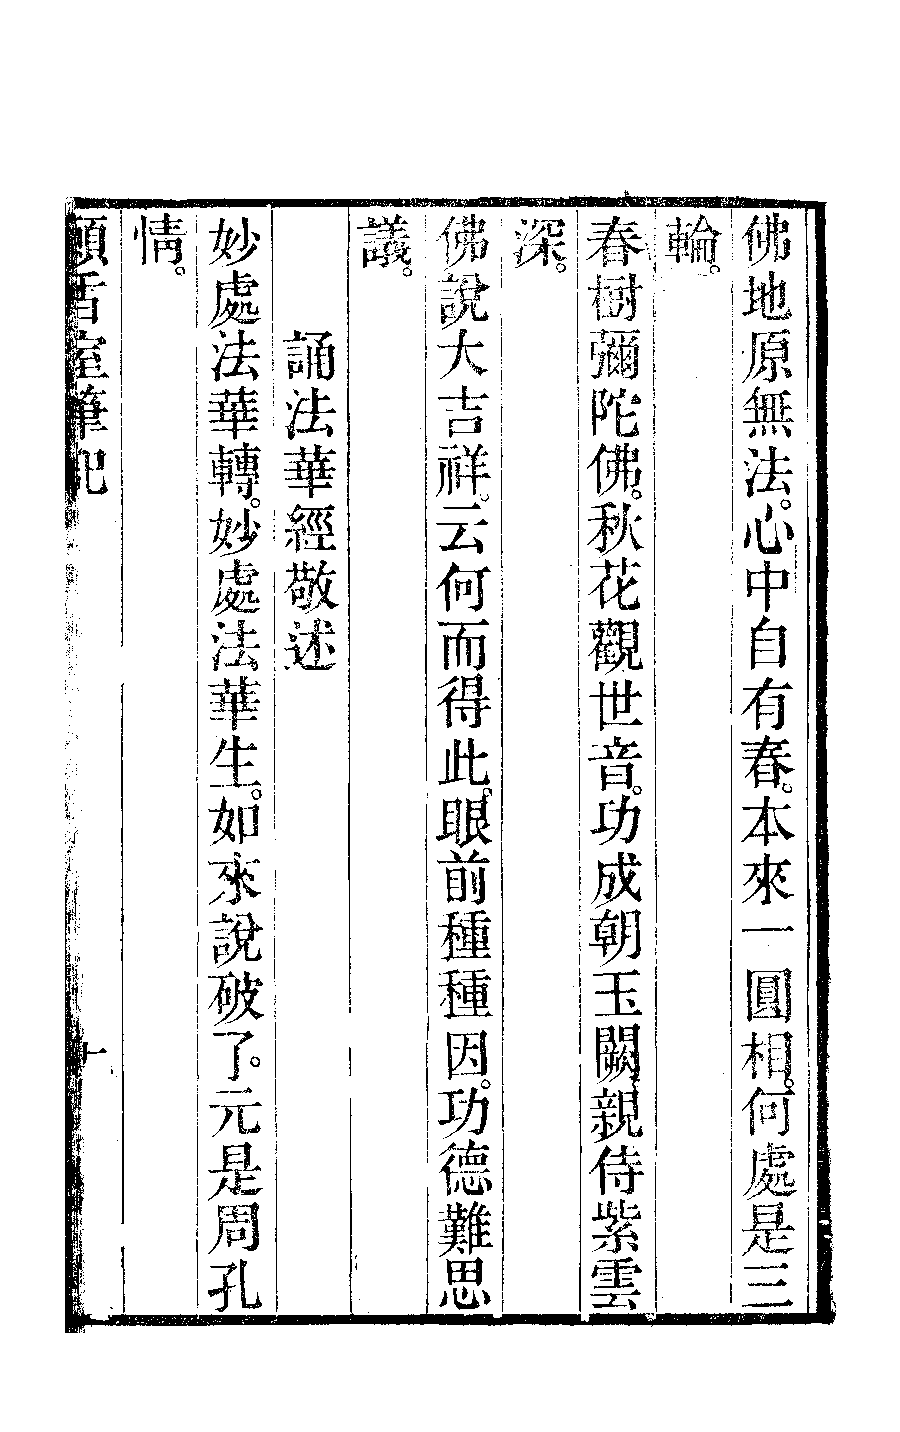 佛地原無法。心中自有春。本來一圓相。何處是三
輪。
春樹彌陀佛。秋花觀世音。功成朝玉闕。親侍紫雲
深。
佛說大吉祥。云何而得此。眼前種種因。功德難思
議。
誦法華經敬述
妙處法華轉。妙處法華生。如來說破了。元是周孔
情。
室筆記
十